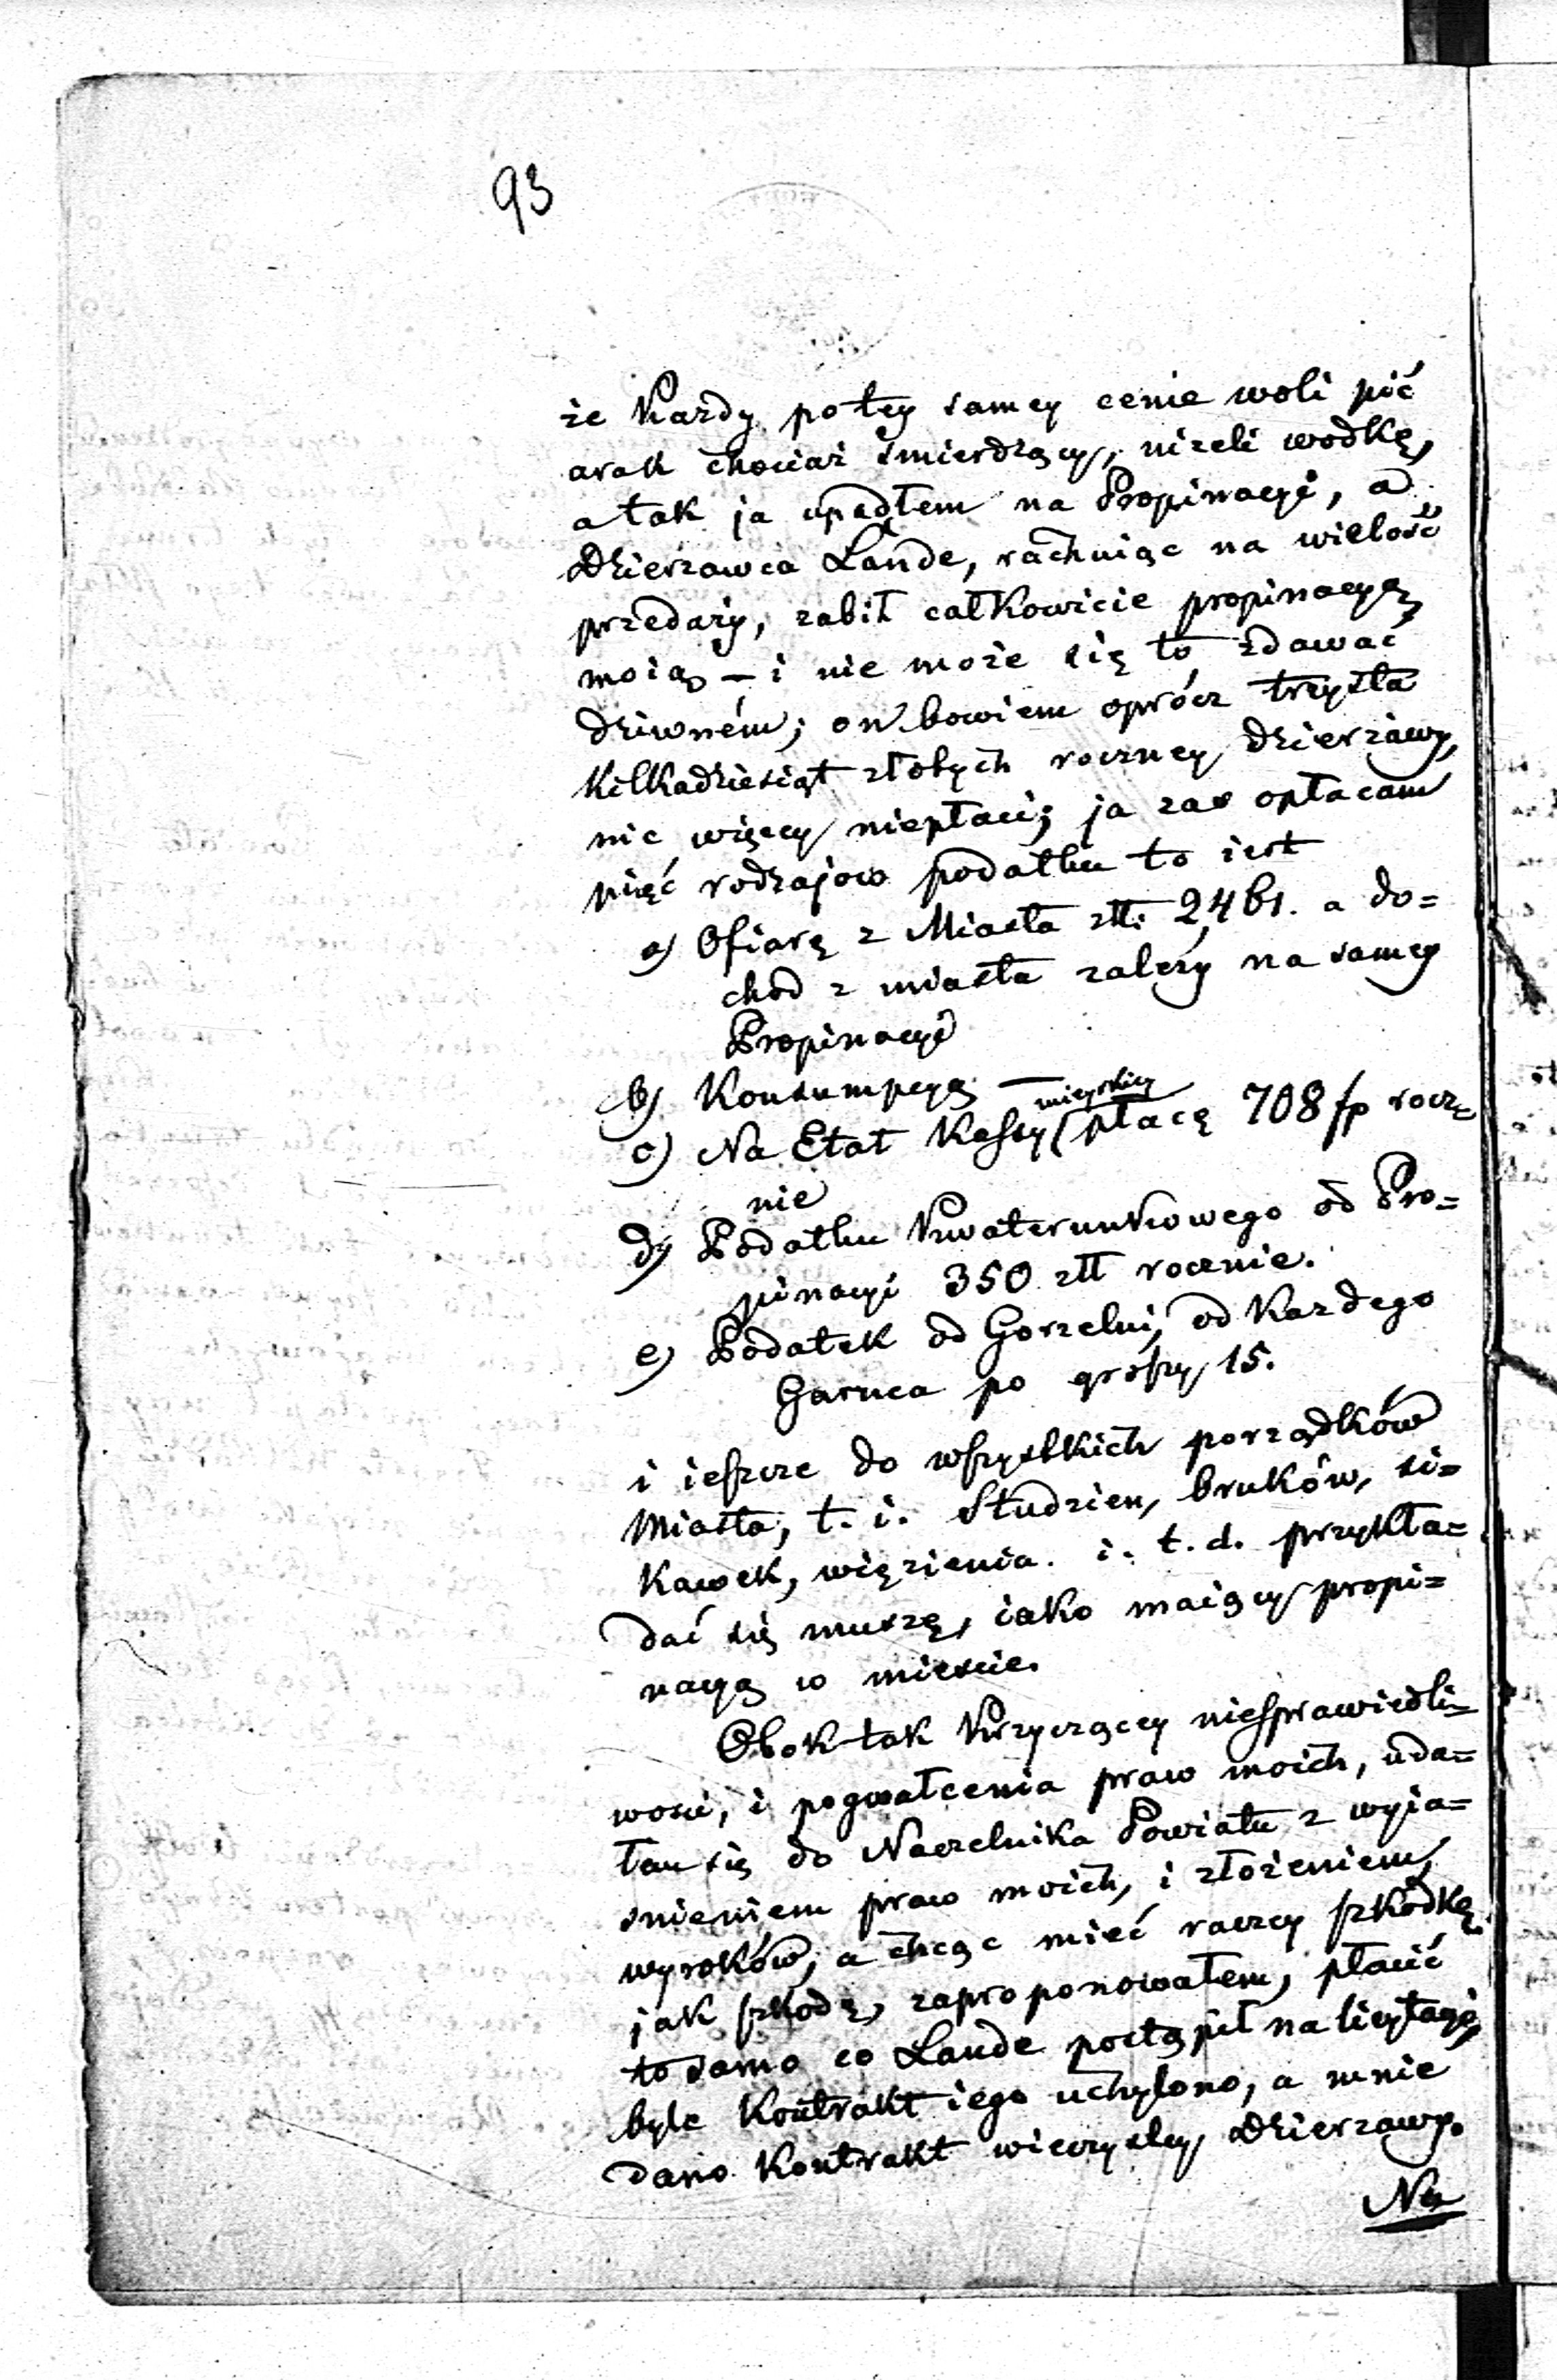 93
że każdy po tey samey cenie woli pić
arak chociaż śmierdzący, niżeli wodkę,
a tak ja upadłem na Propinacyi, a
Dzierzawca Lande, rachuiąc na wielość
przedaży, zabił całkowicie propinacyą
moią – i nie może się to zdawać
dziwném; on bowiem oprócz trzysta
kilkadziesiąt złotych roczney dzierżawy,
nic więcey niepłaci; ja zas opłacam
pięć rodzajow podatku to iest
a) Ofiarę z Miasta złł: 2,461. a do=
chod z miasta zależy na samey
Propinacyi
b) Konsumpcyą —
c) Na Etat Kassy mieyskiey płacę 708 fp rocz=
nie
d) Podatku Kwaterunkowego od Pro=
pinacyi 350 złł rocznie.
e) Podatek od Gorzelni, od każdego
Garnca po groszy 15.
i ieszcze do wszystkich porządków
Miasta, t. i. Studzien, bruków, si=
kawek, więzienia. i. t. d. przykła=
dać się muszę, iako maiący propi=
nacyą w miescie.
Obok tak krzyczącey niesprawiedli=
wosci, i pogwałcenia praw moich, uda=
łem się do Naczelnika Powiatu z wyia=
snieniem praw moich, i złożeniem
wyroków, a chcąc mieć raczey szkodkę
jak szkodę, zaproponowałem, płacić
to samo co Lande postąpił na licytacyi,
byle kontrakt iego uchylono, a mnie
dano kontrakt wieczystey Dzierzawy.
Na